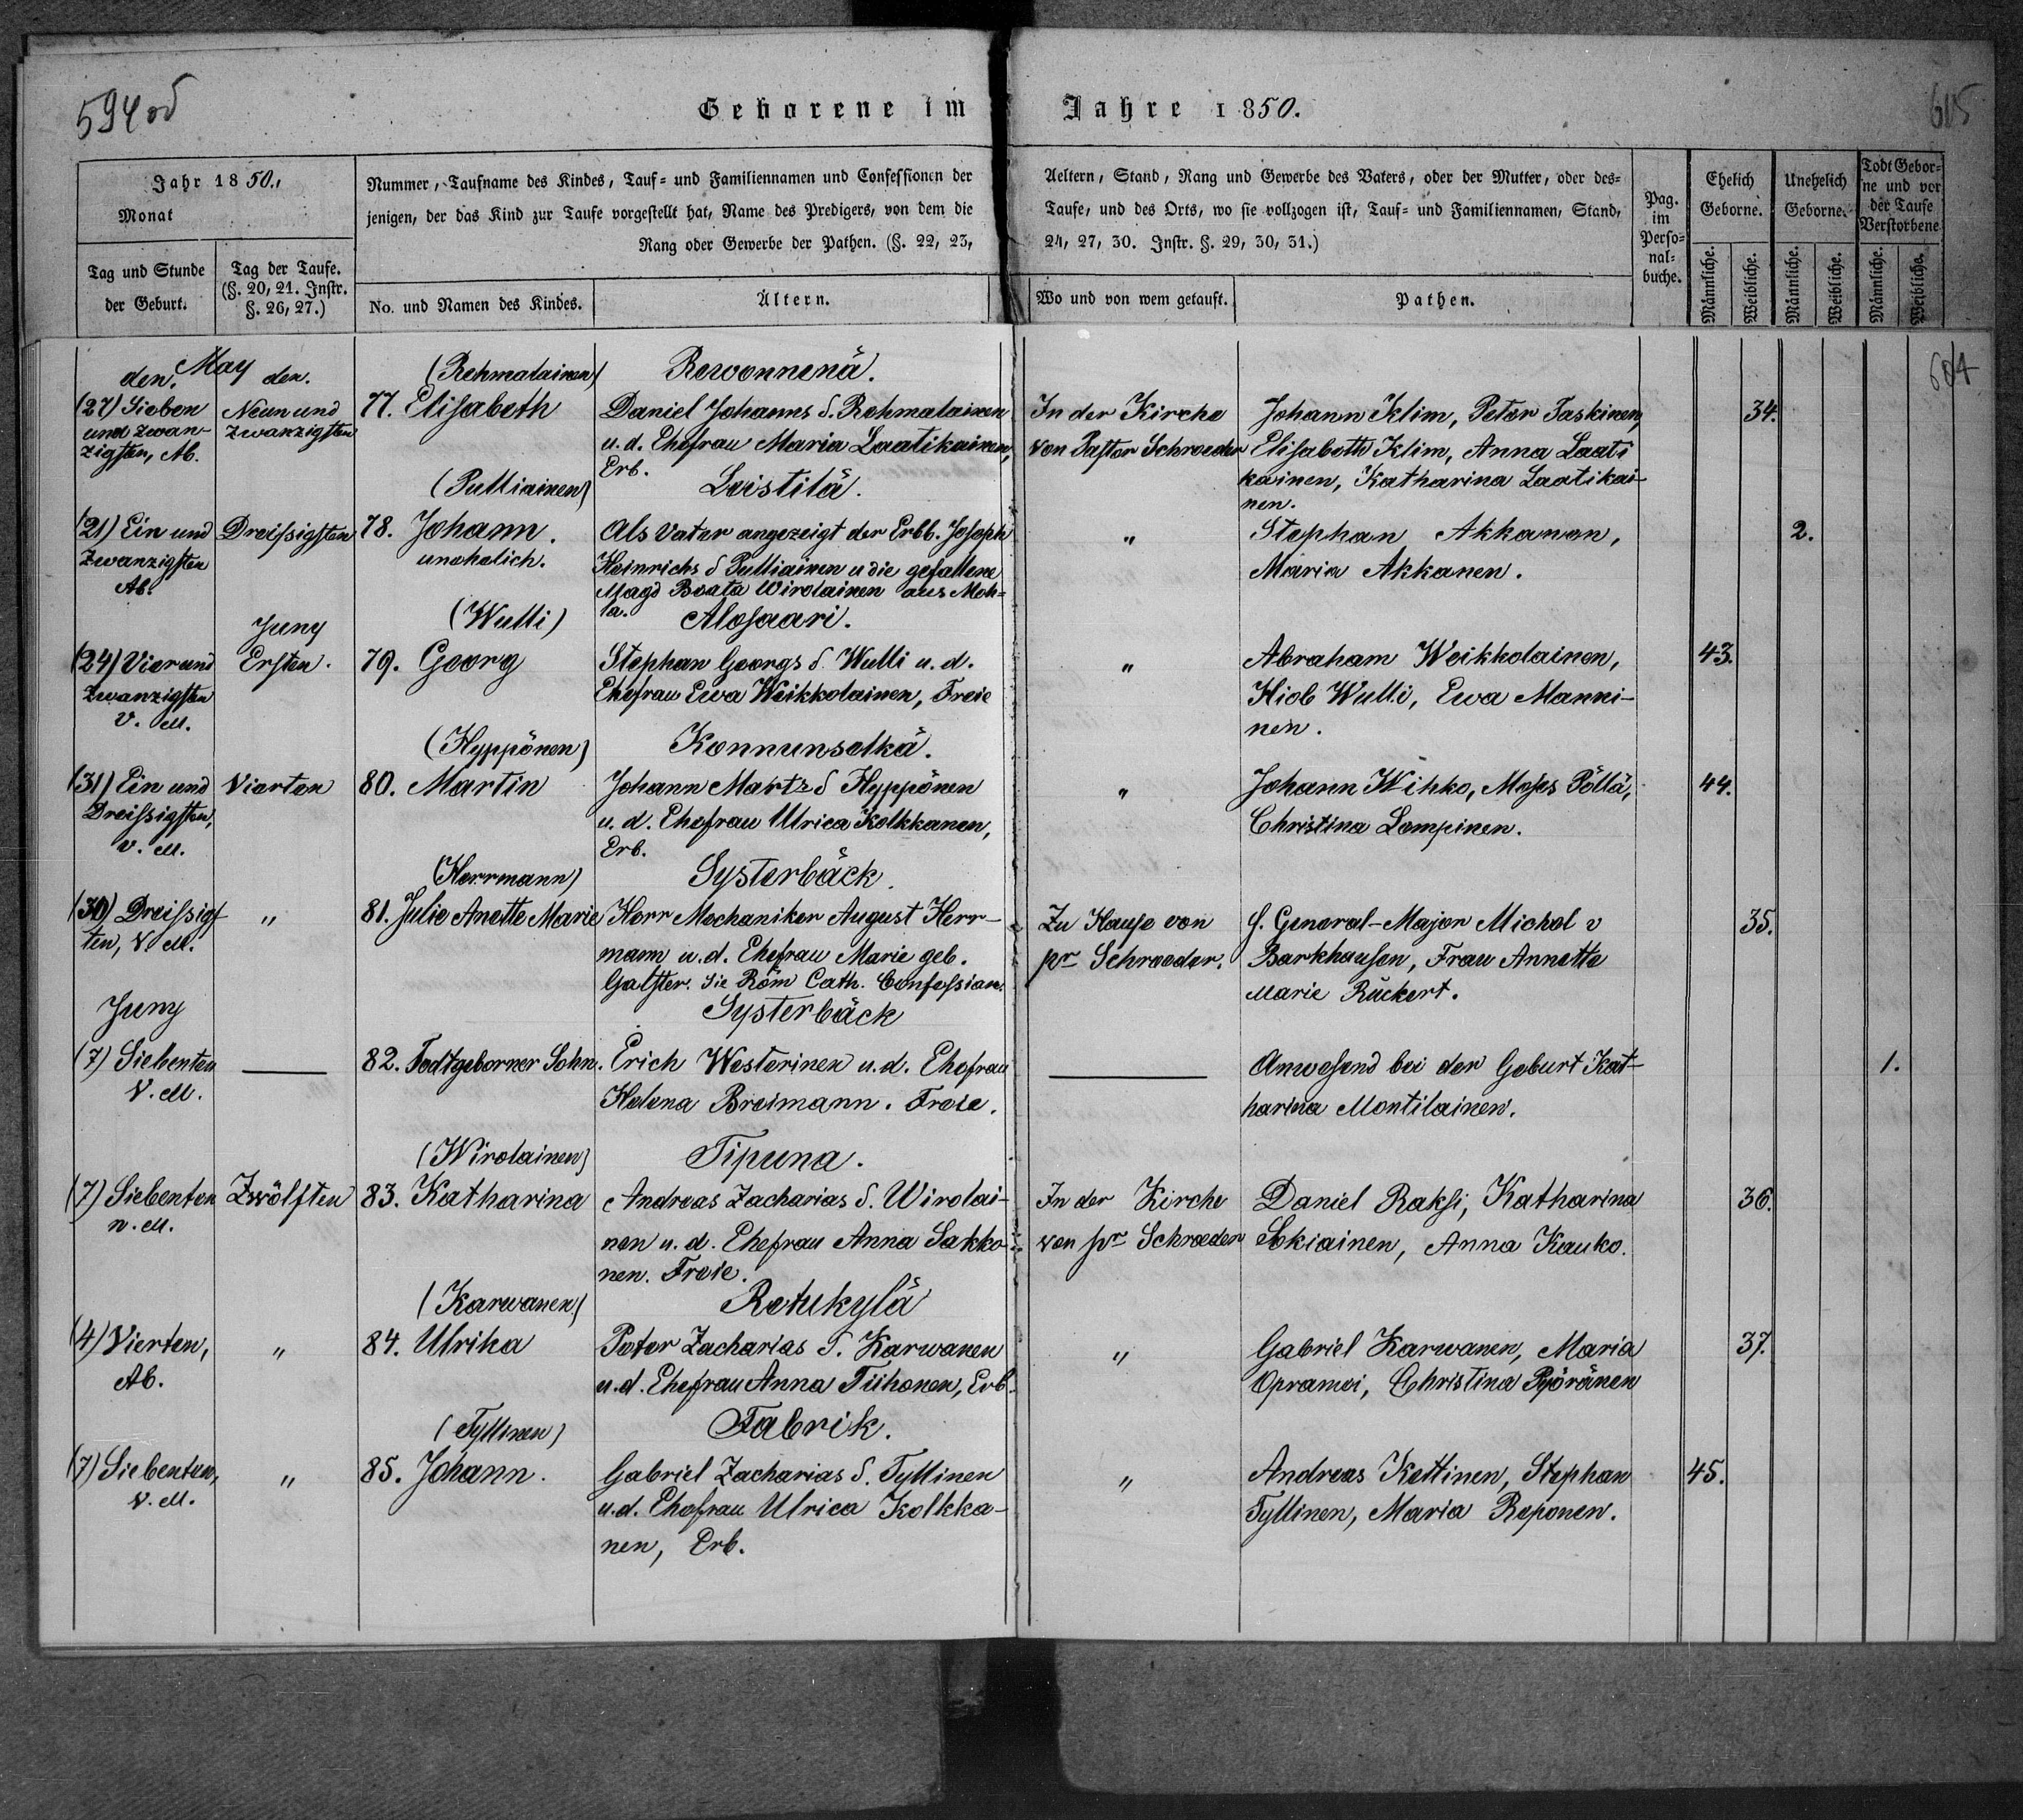 594
Geborene im Jahre 1850.
615
Jahr 1850.,
Monat
Tag und Stunde der Geburt.
Tag der Taufe. (§. 20, 21. Instr. §. 26, 27.)
Nummer, Taufname des Kindes, Tauf- und Familiennamen und Confessionen der Aeltern, Stand, Rang und Gewerbe des Vaters, oder der Mutter, oder des-
jenigen, der das Kind zur Taufe vorgestellt hat, Name des Predigers, von dem die Taufe, und des Orts, wo sie vollzogen ist, Tauf- und Familiennamen, Stand,
Rang oder Gewerbe der Pathen. (§. 22, 23, 24, 27, 30. Instr. §. 29, 30, 31.)
No. und Namen des Kindes.
Ältern.
Wo und von wem getauft.
Pathen.
Pag. im Perso-nal-buche.
Ehelich Geborne.
Unehelich Geborne.
Todt Gebor-ne und vor der Taufe Verstorbene
Männliche. Weibliche. Männliche. Weibliche. Männliche. Weibliche.
604
May
den. den.
(27) Sieben
und zwan-
zigsten, Ab.
Neun und
Zwanzigsten
(Rehmalainen)
77. Elisabeth
Rewonnenä.
Daniel Johanns S. Rehmalainen
u. d. Ehefrau Maria Laatikainen,
Erb.
In der Kirche
von Pastor Schroeder
Johann Klim, Peter Taskinen,
Elisabeth Klim, Anna Laati
kainen, Katharina Laatikai-
nen.
34.
(21) Ein und
Zwanzigsten
Ab.
Dreissigsten
(Pulliainen)
78. Johann.
unehelich.
Leistilä.
Als Vater angezeigt der Erbb. Joseph
Heinrichs S Pulliainen u die gefallene
Magd Beata Wirolainen aus Moh-
la.
"
Stephan Akkanen,
Maria Akkanen.
2.
(24) Vier und
Zwanzigsten
V. M.
Juny
Ersten.
(Wulli)
79. Georg
Alosaari.
Stephan Georgs S. Wulli u. d.
Ehefrau Ewa Weikkolainen, Freie
"
Abraham Weikkolainen,
Hiob Wulli, Ewa Manni-
nen.
43.
(31) Ein und
Dreissigsten,
v. M.
Vierten
(Hyppönen)
80. Martin
Konnunselkä.
Johann Marts S Hyppönen
u. d. Ehefrau Ulrica Kolkkanen,
Erb.
"
Johann Wihko, Moses Pöllä,
Christina Lempinen.
44.
(30) Dreissigs-
ten, V. M.
"
(Herrmann)
81. Julie Anette Marie
Systerbäck.
Herr Mechaniker August Herr-
mann u. d. Ehefrau Marie geb.
Galster. Sie Röm Cath. Confession.
Zu Hause von
pr Schroeder.
H. General-Major Michel v
Barkhausen, Frau Annette
Marie Rückert.
35.
Juny
(7) Siebenten
V. M.
82. Todtgeborner Sohn.
Systerbäck
Erich Westerinen u. d. Ehefrau
Helena Breimann. Freie.
Anwesend bei der Geburt Kat-
harina Montilainen.
1.
(7) Siebenten
n. M.
Zwölften
(Wirolainen)
83. Katharina
Tipuna.
Andreas Zacharias S. Wirolai-
nen u. d. Ehefrau Anna Sakko-
nen. Freie.
In der Kirche
von pr Schroeder
Daniel Raksi, Katharina
Sokiainen, Anna Kauko.
36.
(4) Vierten,
Ab.
"
(Karwanen)
84. Ulrika
Retukylä
Peter Zacharias S. Karwanen
u. d. Ehefrau Anna Tiihonen, Erb.
"
Gabriel Karwanen, Maria
Opramei, Christina Pyöränen
37.
(7) Siebenten,
V. M.
"
(Tyllinen)
85. Johann.
Fabrik.
Gabriel Zacharias S. Tyllinen
u. d. Ehefrau Ulrica Kolkka-
nen, Erb.
"
Andreas Kettinen, Stephan
Tyllinen, Maria Reponen.
45.